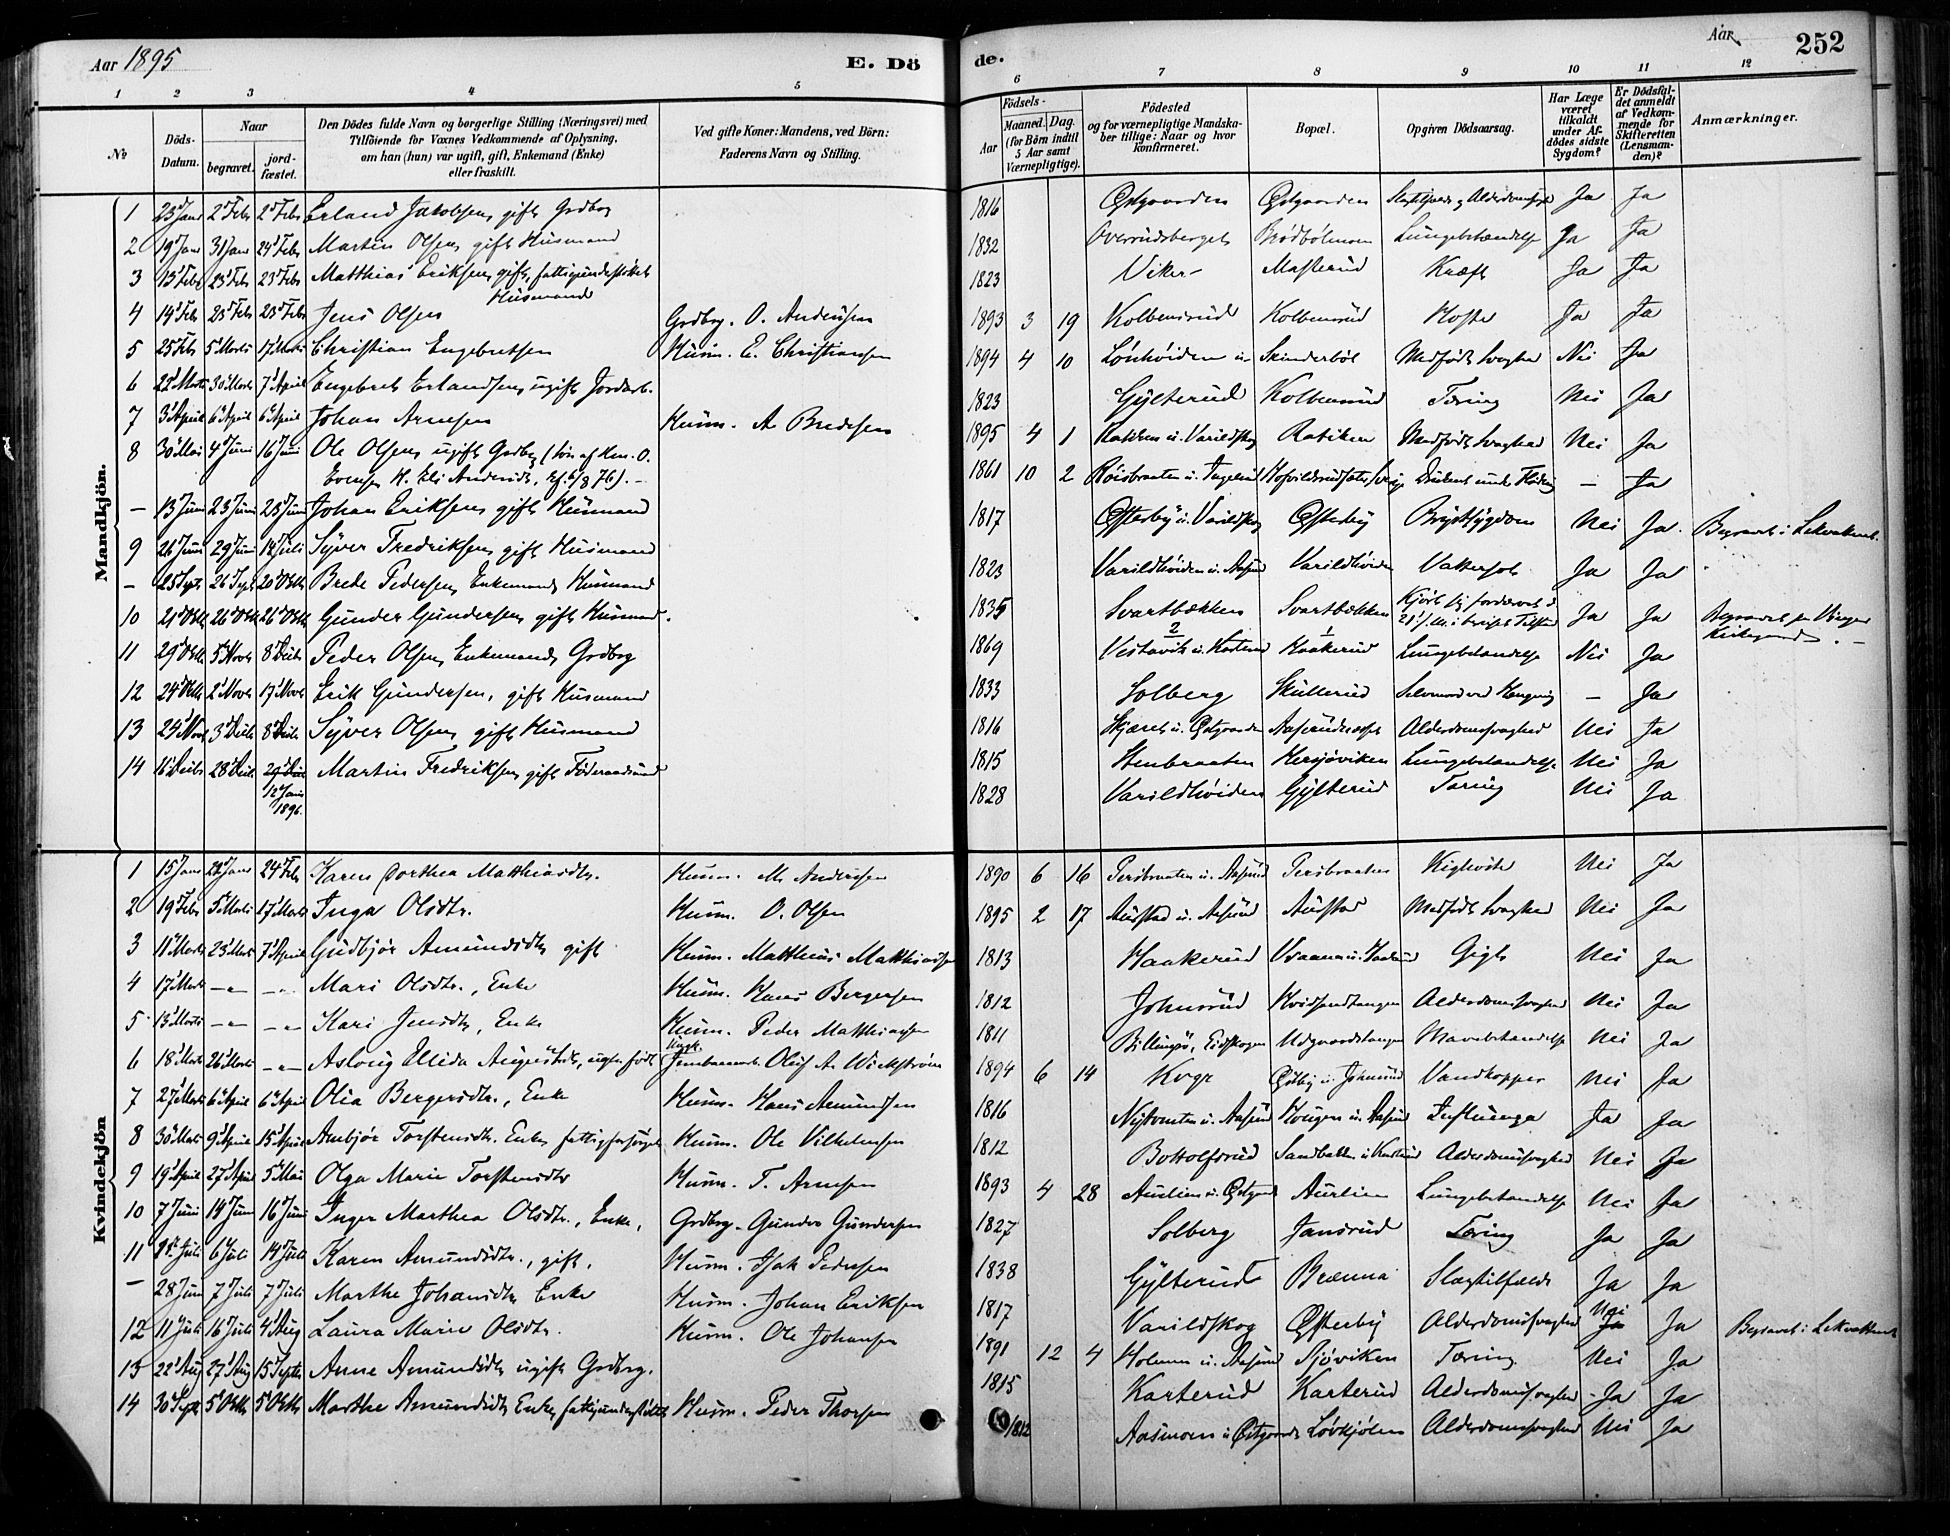 Aar 1895
E. Dö
1 2 3 4 5
№
Döds-Datum.
Naar
begravet.
jord-fæstet.
Den Dödes fulde Navn og borgerlige Stilling (Næringsvei) med
Tilföiende for Voxnes Vedkommende af Oplysning,
om han (hun) var ugift, gift, Enkemand (Enke)
eller fraskilt.
Ved gifte Koner: Mandens, ved Börn:
Faderens Navn og Stilling.
Mandkjön.
1 23 Janr 2 Febr 2 Febr Erland Jakobsen, gift Grdbrg
2 19 Janr 31 Janr 24 Febr Martin Olsen, gift Husmand
3 13 Febr 23 Febr 23 Febr Matthias Eriksen, gift, fattigunderstøttet
Husmand
4 14 Febr 23 Febr 23 Febr Jens Olsen Grdbrg. O. Andersen
5 25 Febr 5 Marts 17 Marts Christian Engebretsen Husm. E. Christiansen
6 22 Marts 30 Marts 7 April Engebret Erlandsen, ugift Jordarb.
7 3 April 6 April 6 April Johan Arnesen Husm. A Bredesen
8 30 Mai 4 Juni 16 Juni Ole Olsen, ugift Grdbrg (Søn af Hm. O.
Evensen
– 13 Juni 23 Juni 23 Juni Johan Eriksen, gift Husmand
9 26 Juni 29 Juni 14 Juli Syver Fredriksen, gift Husmand
– 23 Septr 26 Septr 20 Oktbr Brede Pedersen, Enkemand, Husmand
10 21 Oktb 26 Oktb 26 Oktb Gunder Gundersen, gift Husmand.
11 29 Oktb 5 Novb 8 Decbr Peder Olsen, Enkemand, Grdbrg
12 24 Oktb 2 Novb 17 Novb Erik Gundersen, gift Husmand
13 24 Novb 3 Decbr 8 Decbr Syver Olsen, gift Husmand
14 16 Decbr 28 Decbr 29 Decbr Martin Fredriksen, gift Föderaadsmand
12 Janr
1896.
Kvindekjön
1 15 Janr 22 Janr 24 Febr Karen Dorthea Matthiasdtr. Husm. M. Andersen
2 19 Febr 5 Marts 17 Marts Inga Olsdtr. Husm. O. Olsen
3 11 Marts 23 Marts 7 April Gudbjør Amundsdtr gift Husm. Matthias Matthiasen
4 17 Marts –"– –"– Mari Olsdtr., Enke Husm. Hans Bergersen
5 13 Marts –"– –"– Kari Jensdtr, Enke Husm. Peder Matthiasen
6 18 Marts 26 Marts –"– Aslaug Elida Augustdtr, født Ungk. Jernbanearb. Oluf A. Wickstrøm
7 27 Marts 6 April 6 April Olia Bergersdtr., Enke Husm. Hans Amundsen
8 30 Marts 9 April 15 April Ambjør Torstensdtr. Enke, fattigforsørget Husm. Ole Vilhelmsen
9 19 April 27 April 5 Mai Olga Marie Torstensdtr Husm. T. Arnesen
10 7 Juni 14 Juni 16 Juni Inger Marthea Olsdtr., Enke, Grdbrg. Gunder Gundersen
11 Juli 6 Juli 14 Juli Karen Amundsdtr., gift. Husm. Isak Pedersen
– 28 Juni 7 Juli 7 Juli Marthe Johansdtr Enke Husm. Johan Eriksen
12 11 Juli 16 Juli 4 Aug Laura Marie Olsdtr. Husm. Ole Johansen
13 22 Aug 27 Aug 15 Septbr Anne Amundsdtr ugift Grdbrg.
14 30 Sept 5 Oktb 5 Oktb Marthe Amundsdtr Enke, fattigunderstøttet Husm. Peder Thorsen
de.
Aar
252
6 7 8 9 10 11 12
Födsels-
Aar
Maaned. Dag.
(for Börn indtil
5 Aar samt
Værnepligtige).
Födested
og for værnepligtige Mandska-
ber tillige: Naar og hvor
konfirmeret.
Bopæl.
Opgiven Dödsaarsag.
Har Læge
været
tilkaldt
under Af-
dödes sidste
Sygdom?
Er Dödsfal-
det anmeldt
af Vedkom-
mende for
Skifteretten
(Lensman-
den)?
Anmærkninger.
1816 Østgaarden Østgaarden Slagtilfælde og Ja Ja
1832 Overrudsberget Brødbølmoen Lungebetændelse Ja Ja
1823 Viker Masterud Kræft Ja Ja
1893 3 19 Kolbensrud Kolbensrud Hoste Ja Ja
1894 4 10 Lønhøiden Skinderbøl Medfødt Svaghed Nei Ja
1823 Gylterud Kolbensrud Tæring Nei Ja
1895 4 1 Ratiken u. Varildskog Ratiken Medfødt Svaghed Nei Ja
1861 10 2 Røisbraaten u. Druknet under Fløtning – Ja
1817 Østerby u. Varildskog Østerby Brystsygdom Nei Ja. Begravet i Lekvattnet.
1823 Varildhøiden u. Aasrud Varildhøiden Vattersot Ja Ja
1835 Svartbækken Svartbækken Ja Ja Begravet paa Vinger
Kirkegaard.
1869 Vestavik u. Kaakerud Lungebetændelse Nei Ja
1833 Solberg Skullerud Selvmord ved Hængning – Ja
1816 Skjæret u. Østgaarden Alderdomssvaghed Nei Ja
1815 Stenbraaten Kersjøviken Lungebetændelse Nei Ja
1828 Varildhøiden Gylterud Tæring Nei Ja
1890 6 16 Persbraaten u. Aasrud Persbraaten Kighoste Nei Ja
1895 2 17 Aurstad u. Aasrud Aurstad Medfødt Svaghed Nei Ja
1813 Haakerud Gigt Nei Ja
1812 Johnsrud Alderdomssvaghed Nei Ja
1811 Eidskogen Mavebetændelse Nei Ja
1894 6 14 Østby u. Johnsrud Vandkopper Nei Ja
1816 u. Aasrud Haugen u. Aasrud Influenza Ja Ja
1812 Bottolfsrud Sandbakken Alderdomssvaghed Nei Ja
1893 4 28 Aurlien u. Østgaard Aurlien Lungebetændelse Nei Ja
1827 Solberg Jansrud Tæring Ja Ja
1838 Gylterud Brænna Slagtilfælde Ja Ja
1817 Varildskog Østerby Alderdomssvaghed Nei Ja Begravet i Lekvattnet
1891 12 4 Holmen u. Aasrud Sjøviken Tæring Nei Ja
1815 Karterud Karterud Alderdomssvaghed Ja Ja
1812 Aasmoen u. Østgaarden Løvhjølen Alderdomssvaghed Nei Ja